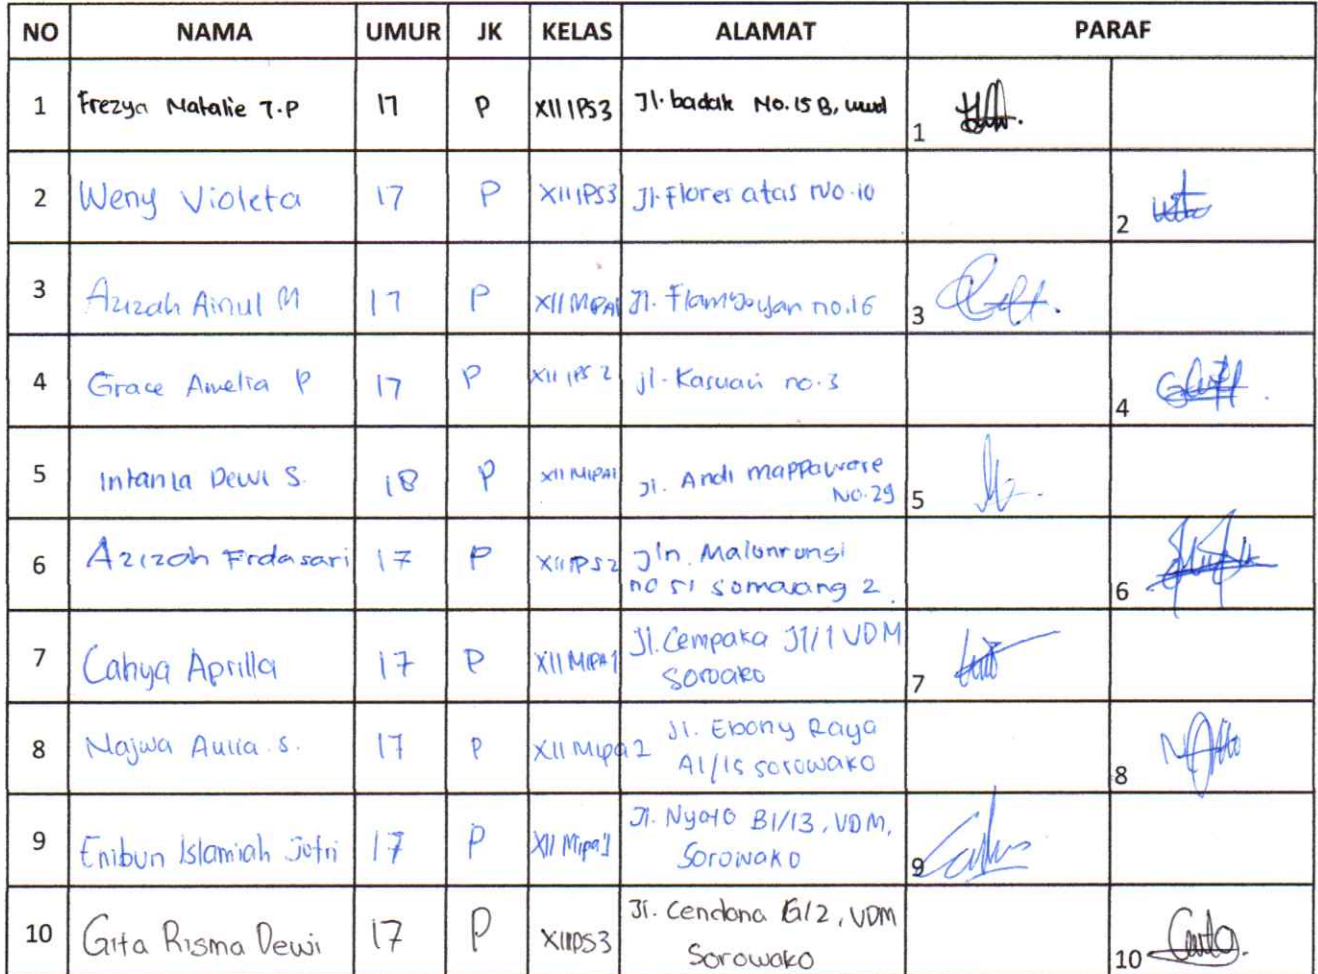 NO NAMA UMUR JK KELAS ALAMAT PARAF
1 Frezya Natalie T.P 17 P XII IPS3 Jl. badak No. 15 B, wwd 1
2 Weny Violeta 17 P XII IPS3 Jl. Flores atas No. 10 2
3 Azizah Ainul M 17 P XII MIPA1 Jl. Flamboyan no.16 3
4 Grace Amelia P 17 P XII IPS 2 jl. Kasuari no. 3 4
5 Intania Dewi S. 18 P XII MIPA1 Jl. Andi mappaware
No. 29 5
6 Azizah Frdasari 17 P XII IPS2 Jln. Malunrungi
no 51 somarang 2 6
7 Cahya Aprilla 17 P XII MIPA1 Jl. Cempaka J1/1 VDM
Soroako 7
8 Najwa Aulia. S. 17 P XII Mipa 2 Jl. Ebony Raya
A1/15 sorowako 8
9 Enibun Islamiah Jofri 17 P XII Mipa1 Jl. Nyato B1/13, VDM,
Sorowako 9
10 Gita Risma Dewi 17 P XII IPS3 Jl. Cendana G/2, VDM
Sorowako 10